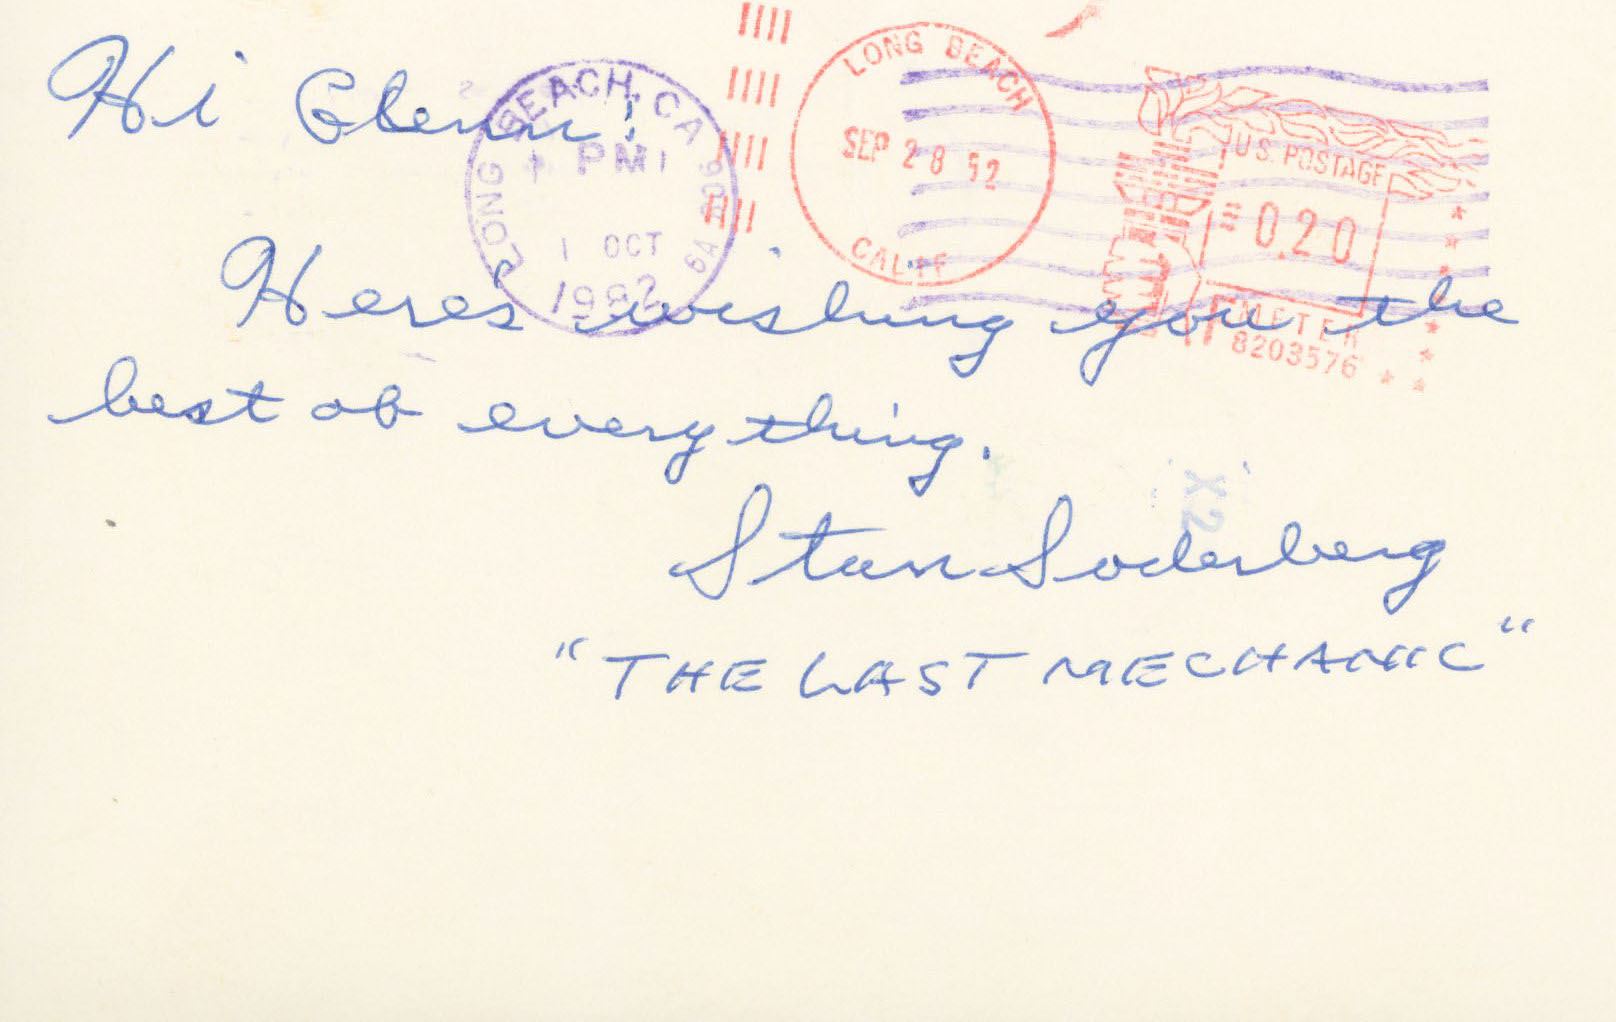 Hi Glenn!
LONG BEACH, CA
PM
1 OCT
1982
LONG BEACH
SEP 28
CALIF
U.S. POSTAGE
0.20
METER
8203576
Here's wishing you the
best of everything.
X2
Stan Soderberg
"THE LAST MECHANIC"